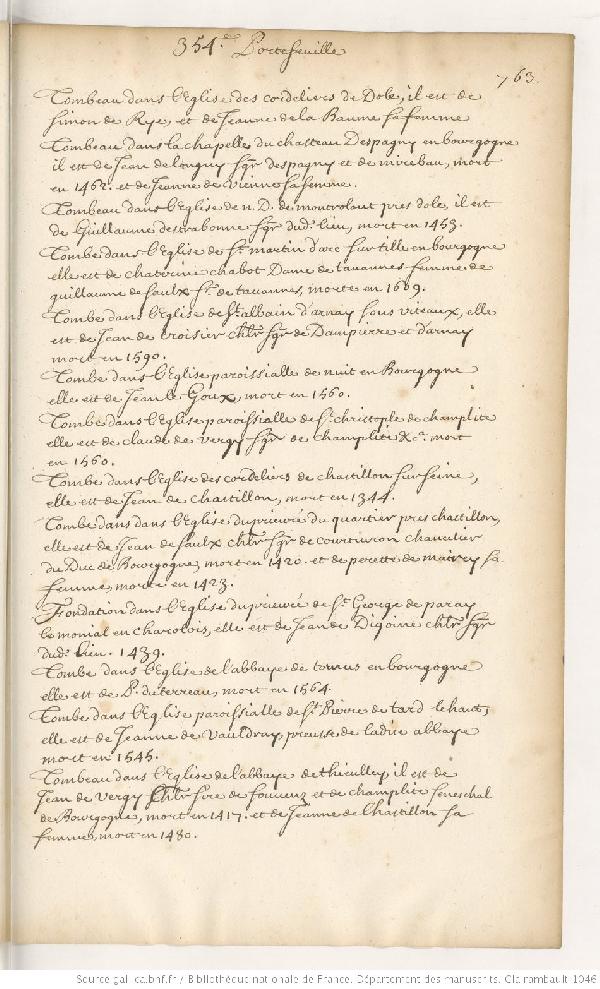 354.e Portefeuille
763.
Tombeau dans l'Eglise des cordeliers de Dole, il est de
Simon de Rye, et de Jeanne de la Baume sa femme
Tombeau dans la chapelle du chasteau Despagny en bourgogne
il est de Jean de longuy sgr despagny et de mirebau, mort
en 1462. et de Jeanne de vienne sa femme.
Tombeau dans l'Eglise de n. D. de montrolant pres dole, il est
de Guillaume destrabonne sgr dud. lieu, mort en 1453.
Tombe dans l'Eglise de St martin d'arc sur tille en bourgogne
elle est de chaterine chabot Dame de tavannes femme de
guillaume de saulx Sr. de tavannes, morte en 1609.
Tombe dans l'Eglise de St albain d'arnay sous viteaux, elle
est de Jean de croisier chlr sgr de Dampierre et d'arnay
mort en 1590.
Tombe dans l'Eglise paroissialle de nuit en Bourgogne
elle est de Jean le Goux, mort en 1560.
Tombe dans l'Eglise paroissialle de St. christople de champlite
elle est de claude de vergy sgr de champlite &c. mort
en 1560.
Tombe dans l'Eglise des cordeliers de chastillon sur seine,
elle est de Jean de chastillon, mort en 1344.
Tombe dans dans l'Eglise du prieuré du quartier pres chastillon,
elle est de Jean de saulx chlr sgr de courtivron chancelier
du Duc de Bourgogne, mort en 1420. et de perette de mairey sa
femme, morte en 1423.
Fondation dans l'Eglise du prieuré de St. George de paray
le monial en charolois, elle est de Jean de Digoine chlr sgr
dud. lieu. 1439.
Tombe dans l'Eglise de l'abbaye de tornus en bourgogne
elle est de P. du terreau, mort en 1564.
Tombe dans l'Eglise paroissialle de St. Pierre de tard le haut,
elle est de Jeanne de Vauldrey de ladite abbaye
mort en 1545.
Tombeau dans l'Eglise de l'abbaye de thieulley, il est de
Jean de vergy chlr sire de fouvenz et de champlite seneschal
de Bourgogne, mort en 1417. et de Jeanne de Chastillon sa
femme, mort en 1480.
Source gallica.bnf.fr / Bibliothèque nationale de France. Département des manuscrits. Clairambault 1046